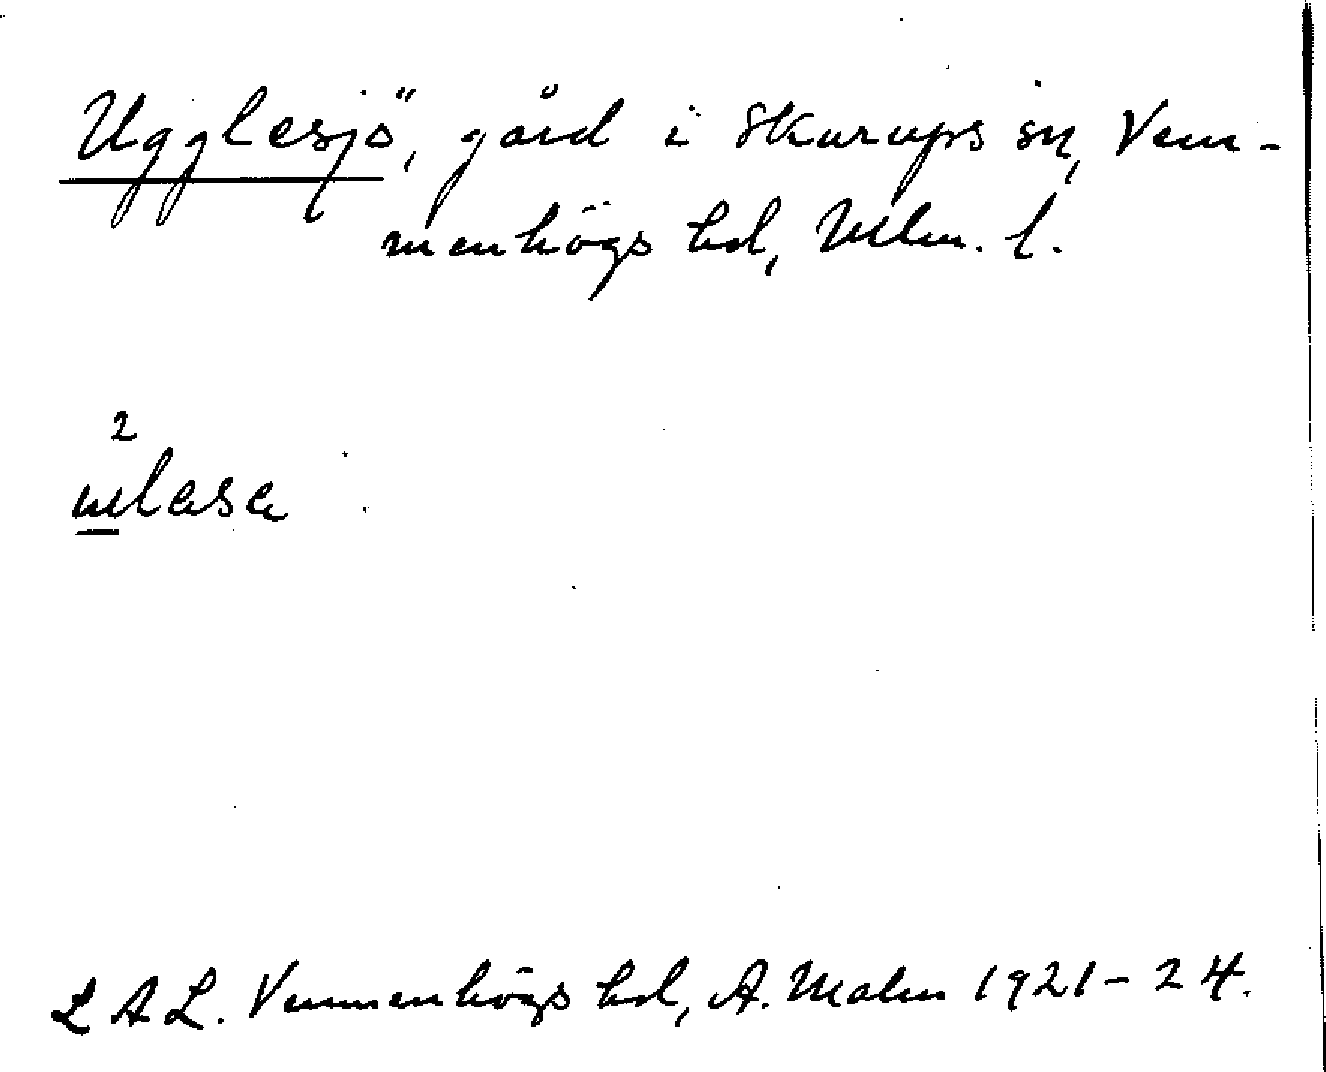 Ugglesjö, gård i Skurups sn, Vem-
menhögs hd, Mlm. l.
2
LAL. Vemmenhögs hd, A. Malm 1921-24.